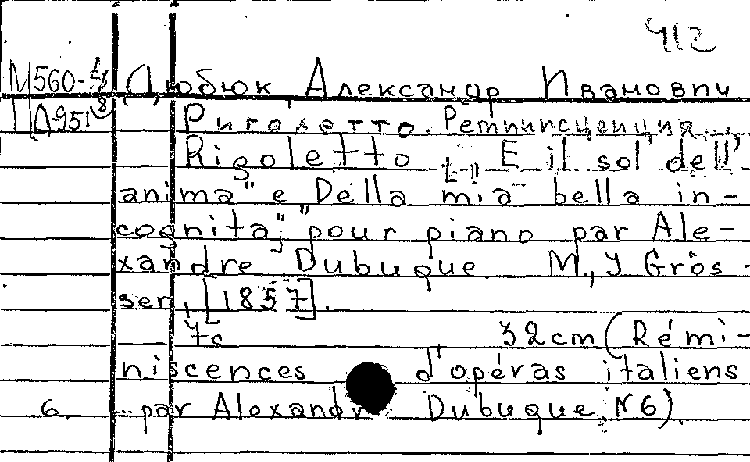 412
М560-4/8 Дюбюк, Александр Иванович
Д951 Риголетто. Реминисценция...
Rigoletto [...] E il sol dell'
anima" e "Della mia bella in-
cognita", pour piano par Ale-
xandre Dubuque M., J Gros-
ser, [1857].
7с 32cm (Rémi-
niscences d'opéras italiens
6. par Alexandre Dubuque, N6).